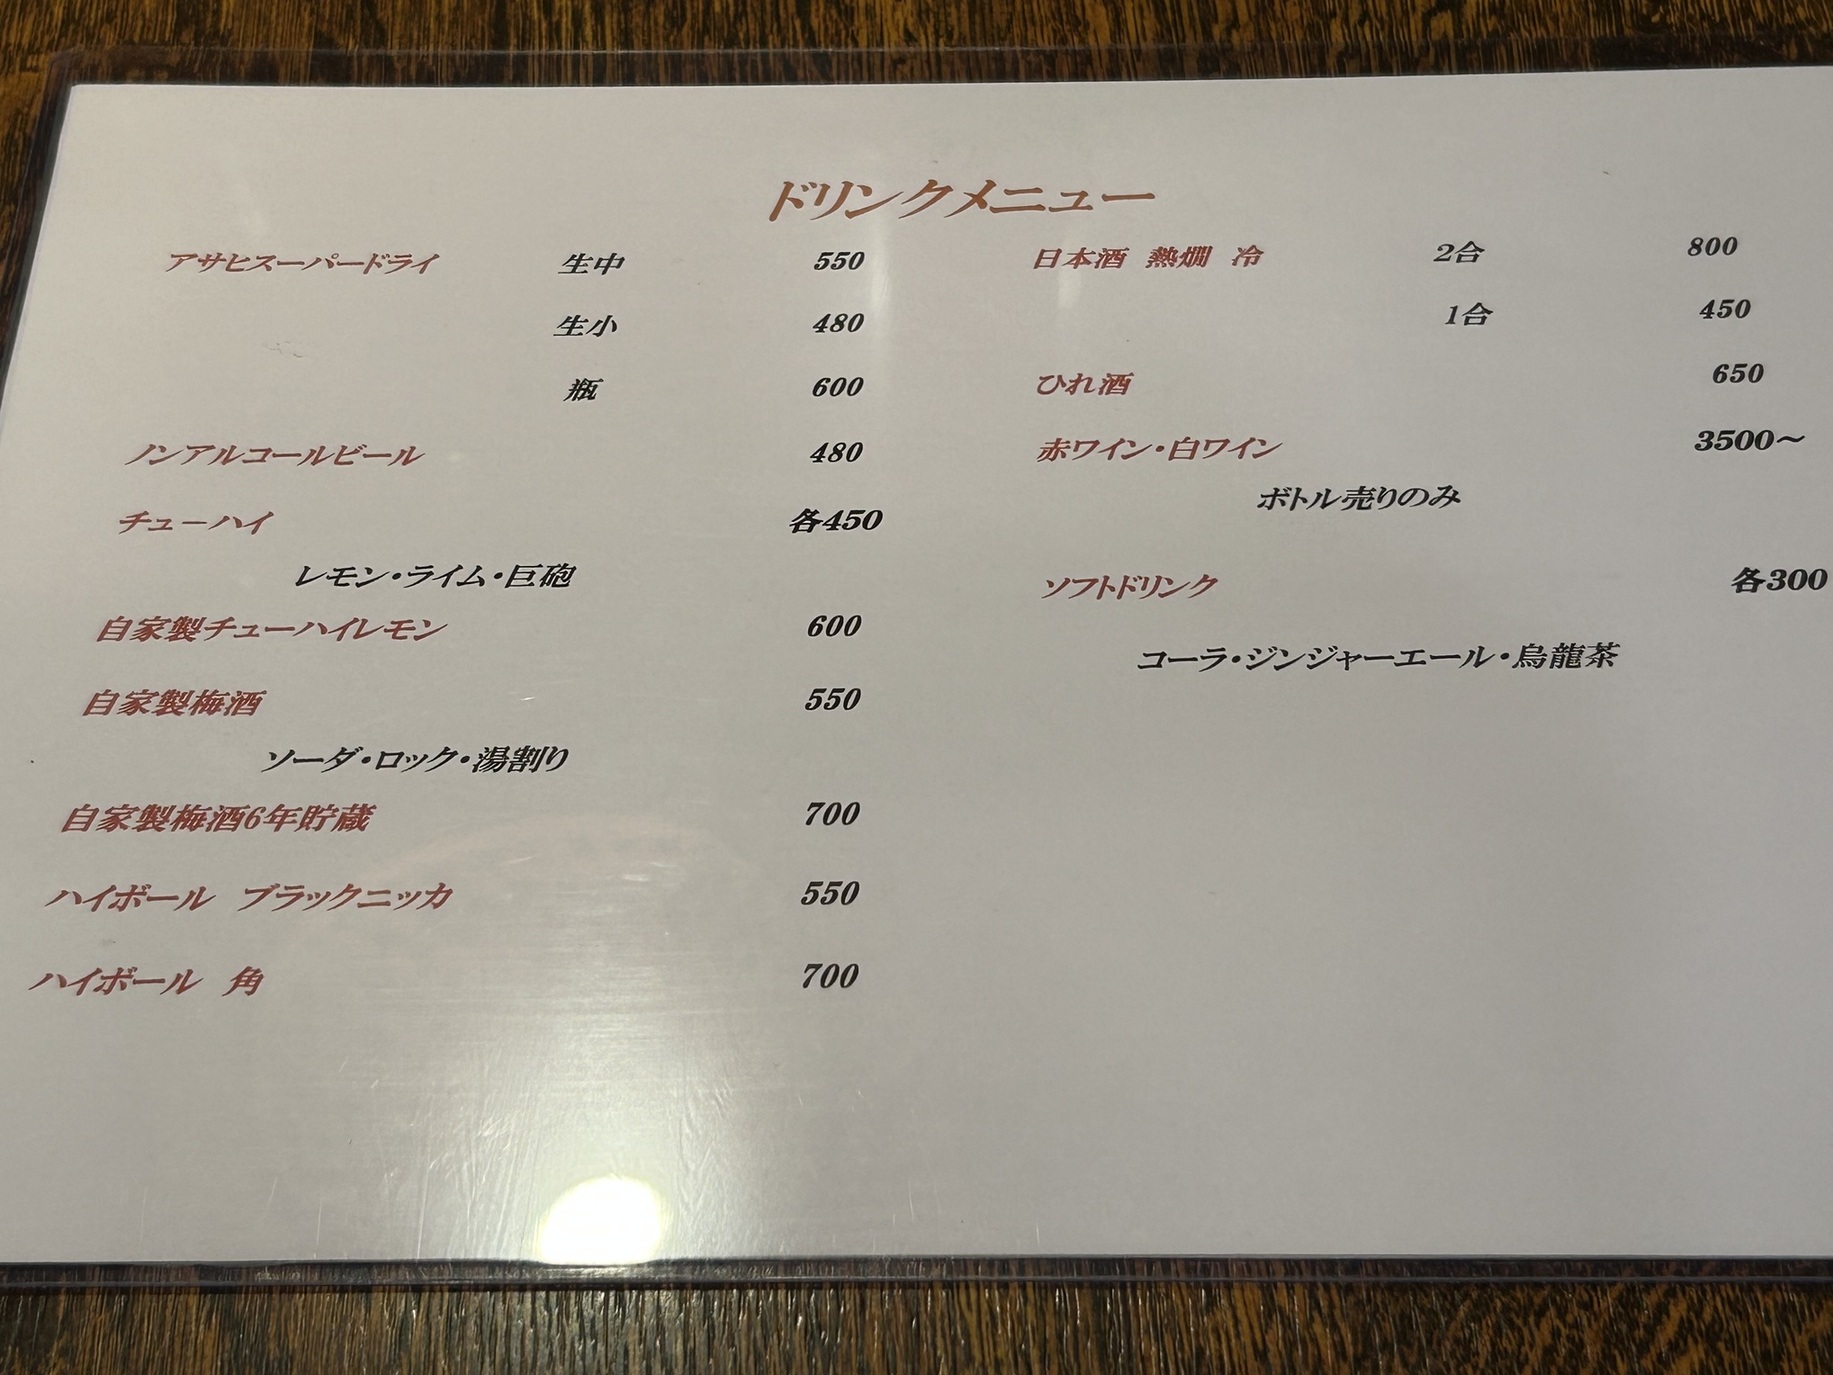 ドリンクメニュー
アサヒスーパードライ 生中 550
生小 480
瓶 600
ノンアルコールビール 480
チューハイ 各450
レモン・ライム・巨砲
自家製チューハイレモン 600
自家製梅酒 550
ソーダ・ロック・湯割り
自家製梅酒6年貯蔵 700
ハイボール ブラックニッカ 550
ハイボール 角 700
日本酒 熱燗 冷 2合 800
1合 450
ひれ酒 650
赤ワイン・白ワイン 3500～
ボトル売りのみ
ソフトドリンク 各300
コーラ・ジンジャーエール・烏龍茶